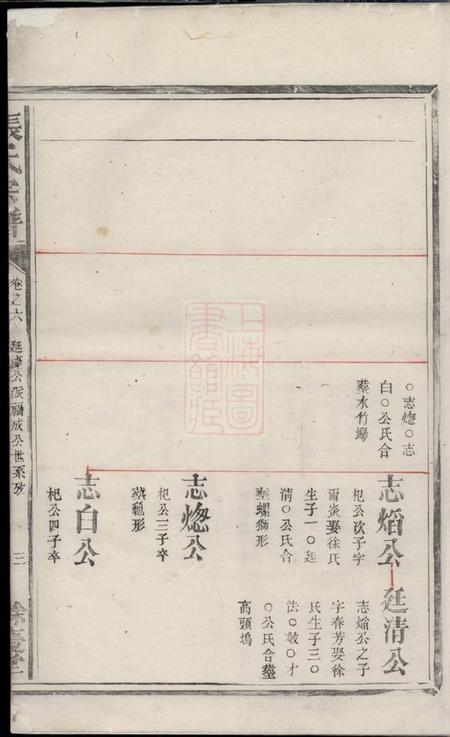 ○志熜○志
白○公氏合
葬水竹塢
志熖公
杞公次子字
爾炎娶徐氏
生子一○廷
清○公氏合
塟螺獅形
廷清公
志熖公之子
字春芳娶徐
氏生子三○
法○敖○才
○公氏合塟
高頭塢
志熜公
杞公三子卒
塟龜形
志白公
杞公四子卒
張氏宗譜
卷之六
延慶公派福成公世系攷
三
上海圖書館藏